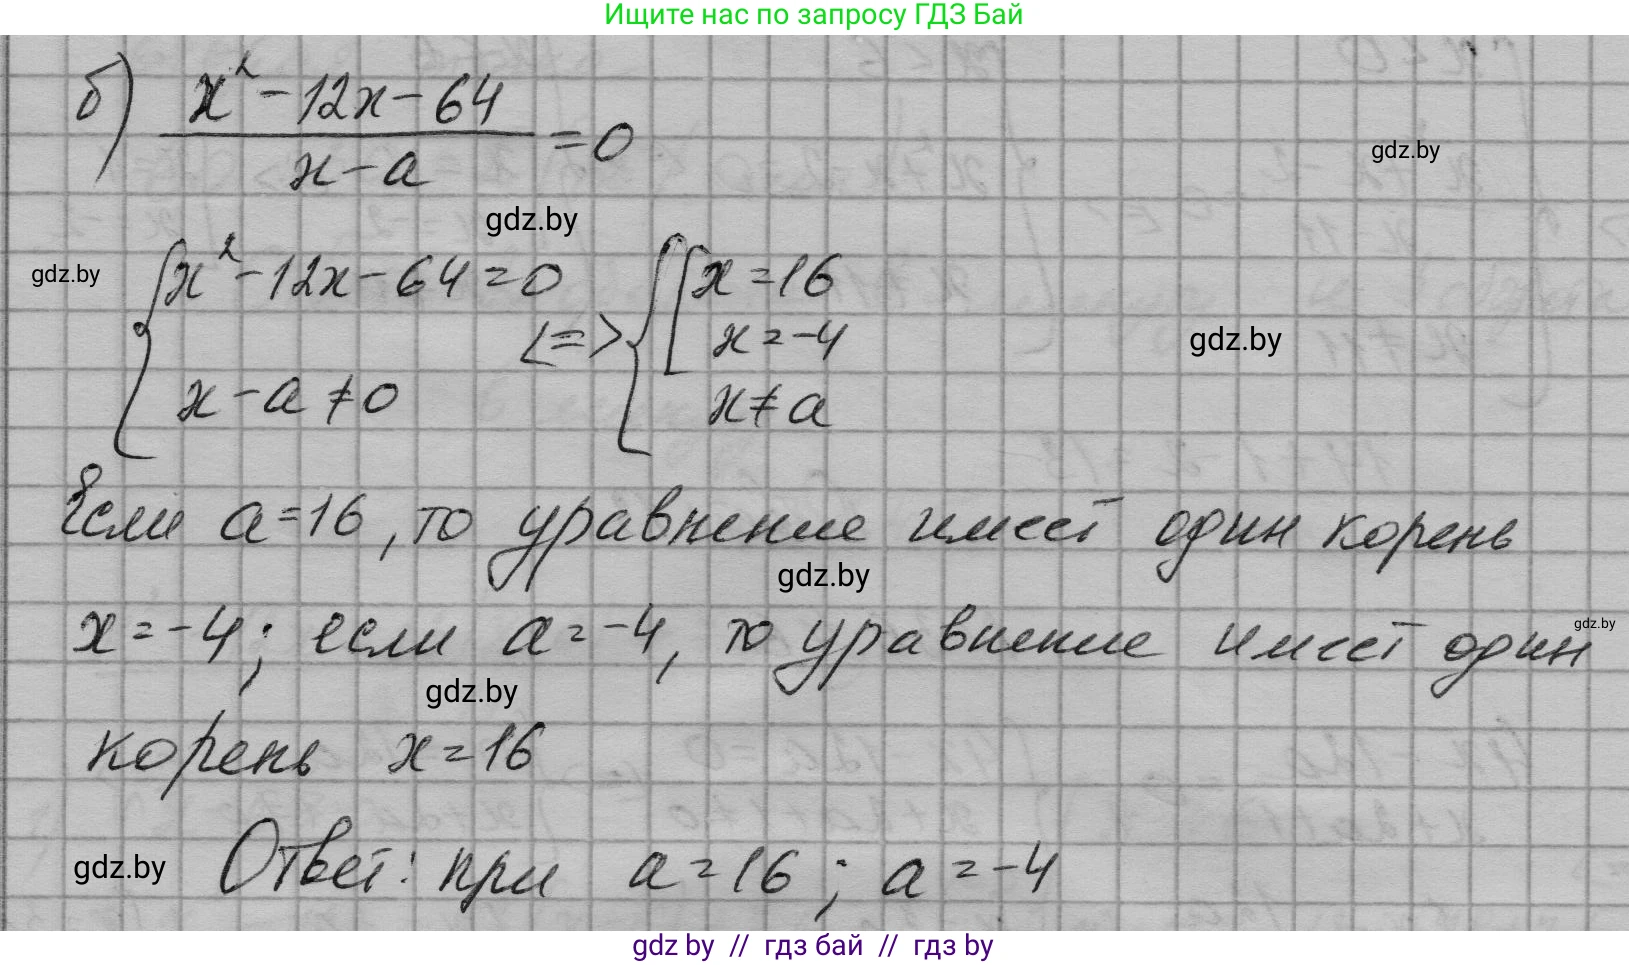 Ищите нас по запросу ГДЗ Бай
б) (x² - 12x - 64)/(x - a) = 0
gdz.by
gdz.by
gdz.by
{x² - 12x - 64 = 0
x - a ≠ 0
<=> {[x = 16
x = -4
x ≠ a
gdz.by
Если a = 16, то уравнение имеет один корень
gdz.by
x = -4; если a = -4, то уравнение имеет один
gdz.by
gdz.by
корень x = 16
Ответ: при a = 16; a = -4
gdz.by
gdz by // гдз бай // гдз by